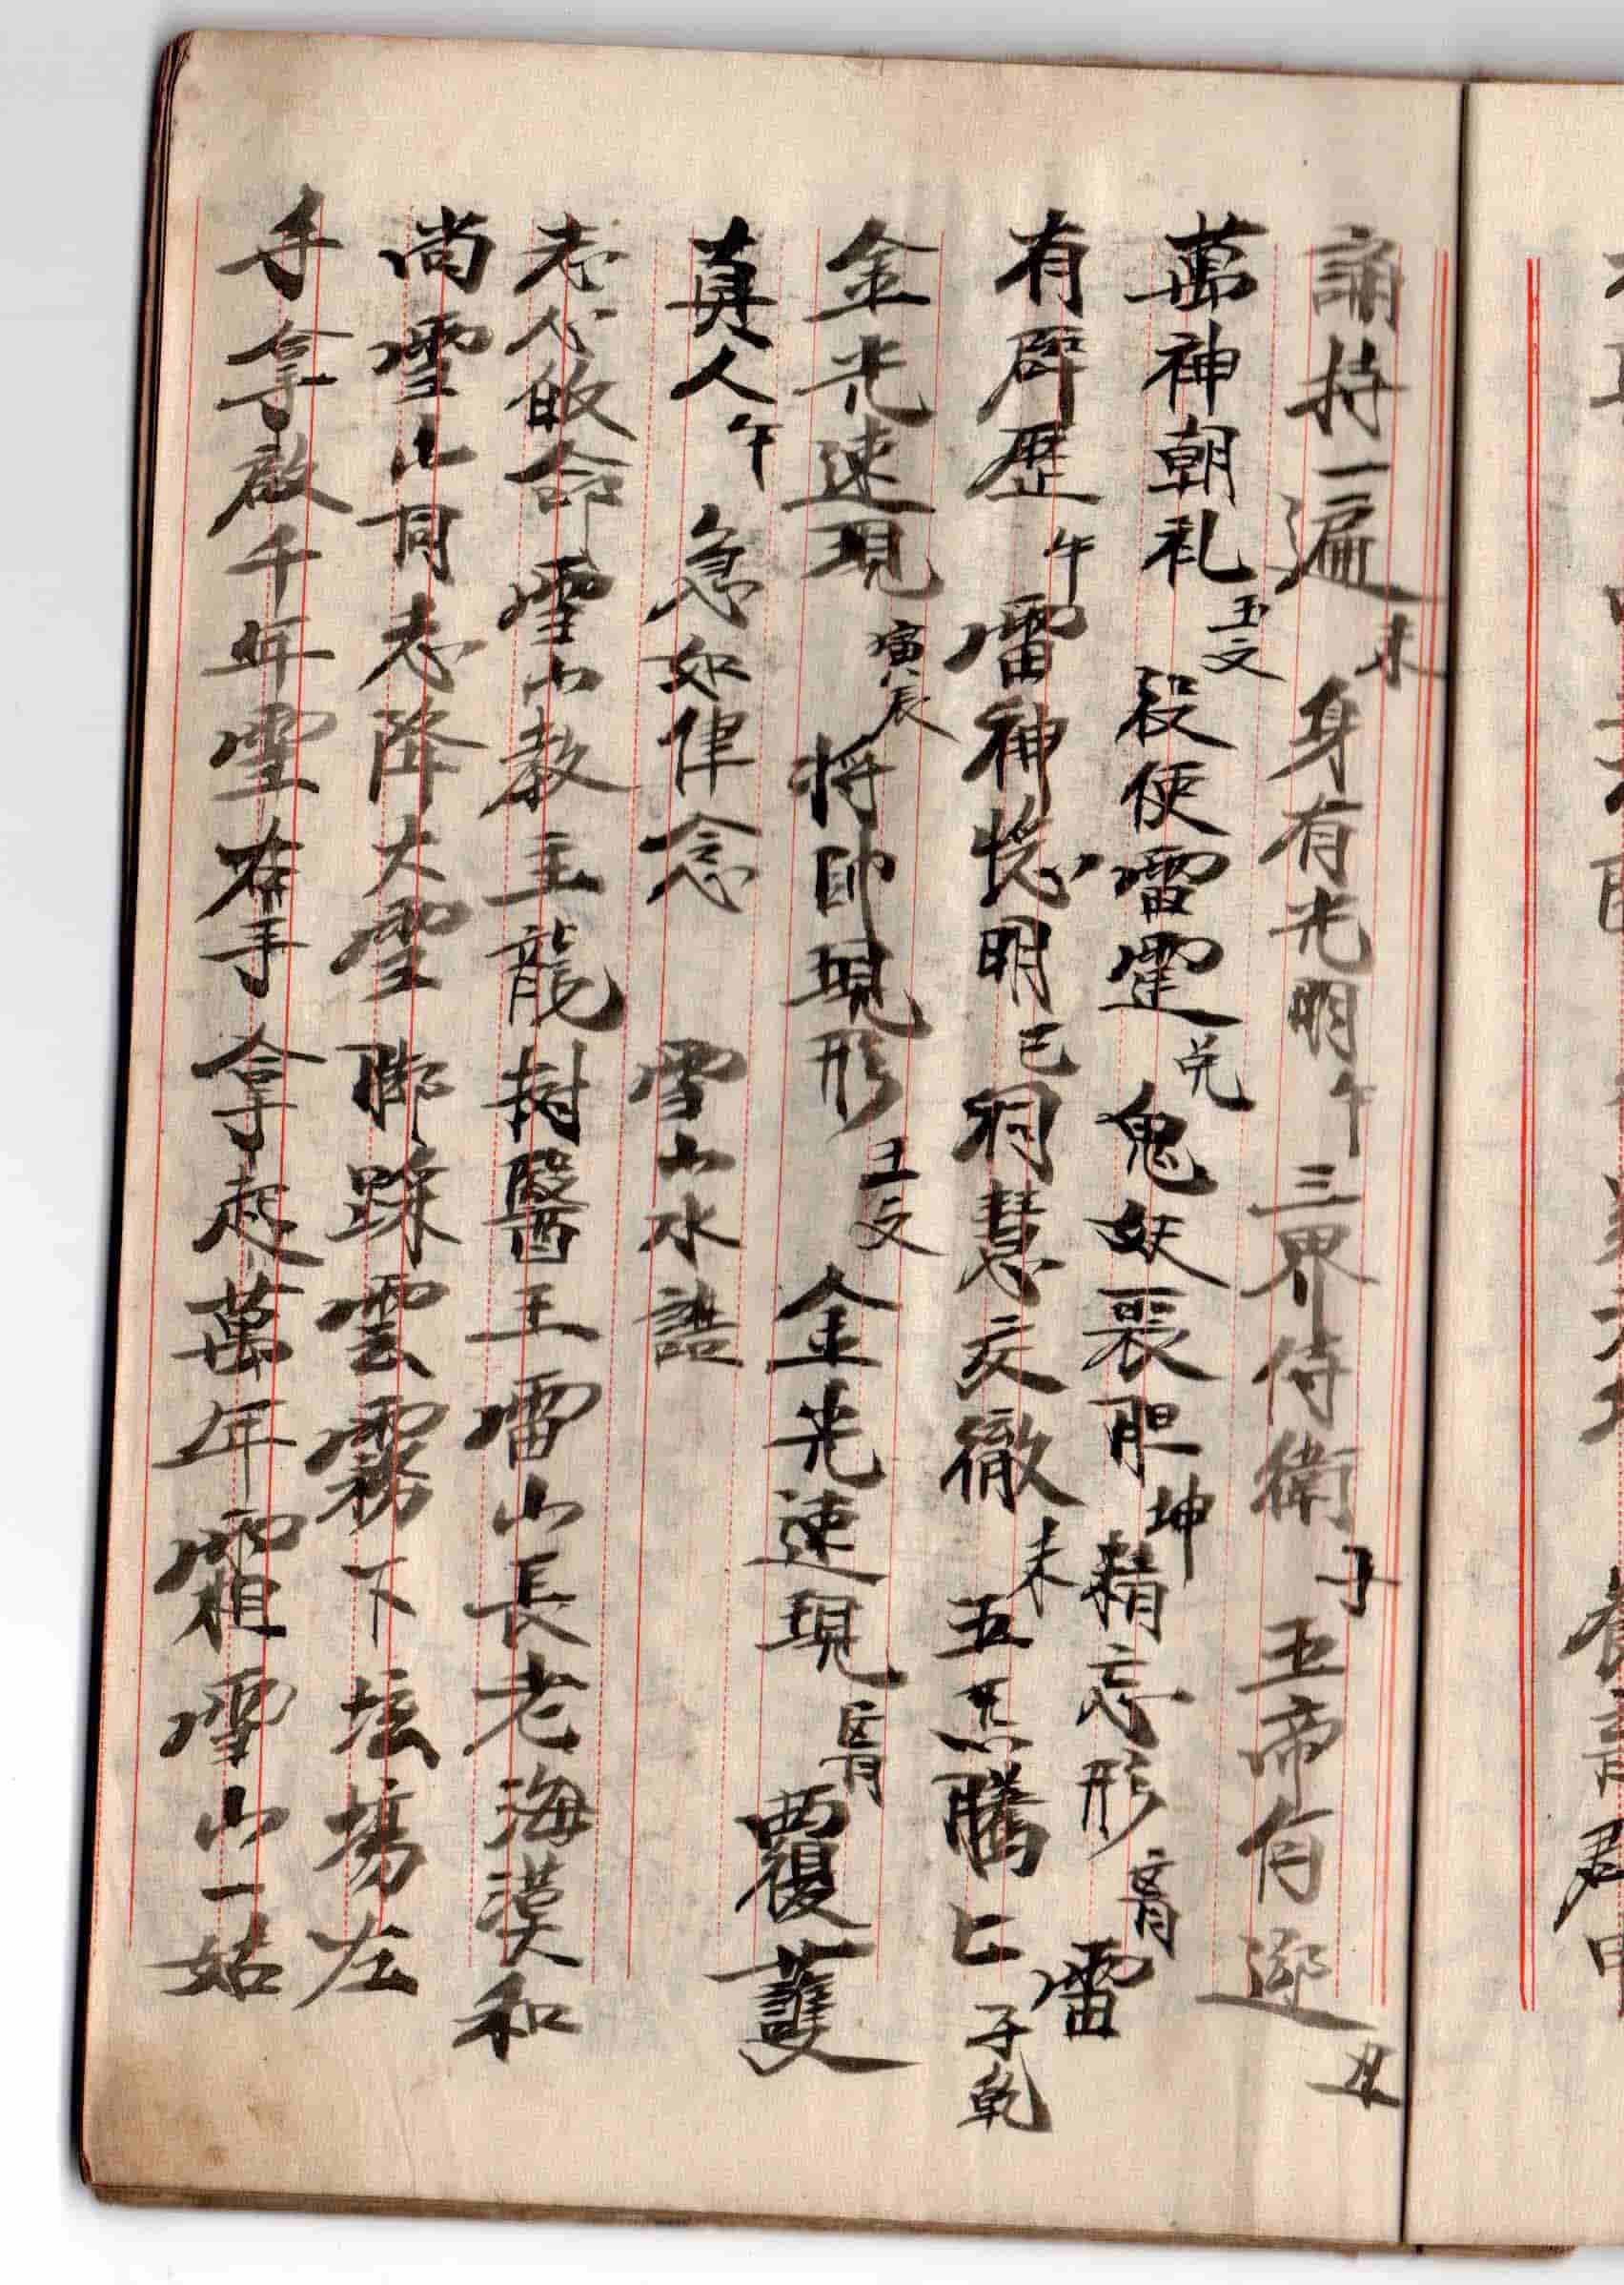 誦持一遍未身有光明午三界侍衛子五帝有迎丑
萬神朝礼玉文役使雷霆兌鬼妖喪胆坤精忘形雷
有霹歷午雷神明巳洞慧交徹未五炁騰匕子乾
金光速現寅辰將帥現形玉文金光速現覆護
真人午急如律念雪山水誥
志心皈命雪山教主龍樹醫王雷山長老海漠和
尚雪山同志降大雪脚踩雲霧下坛場左
手拿啟千年雪右手拿起萬年霜雪山一姑